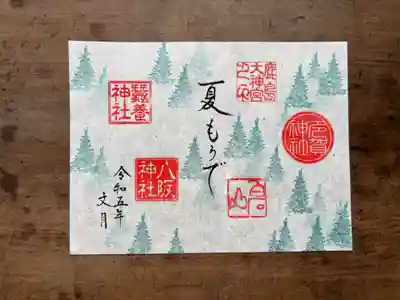 鹿島
大神宮
夏もうで
蠶養
神社
八阪
神社
令和五年
文月